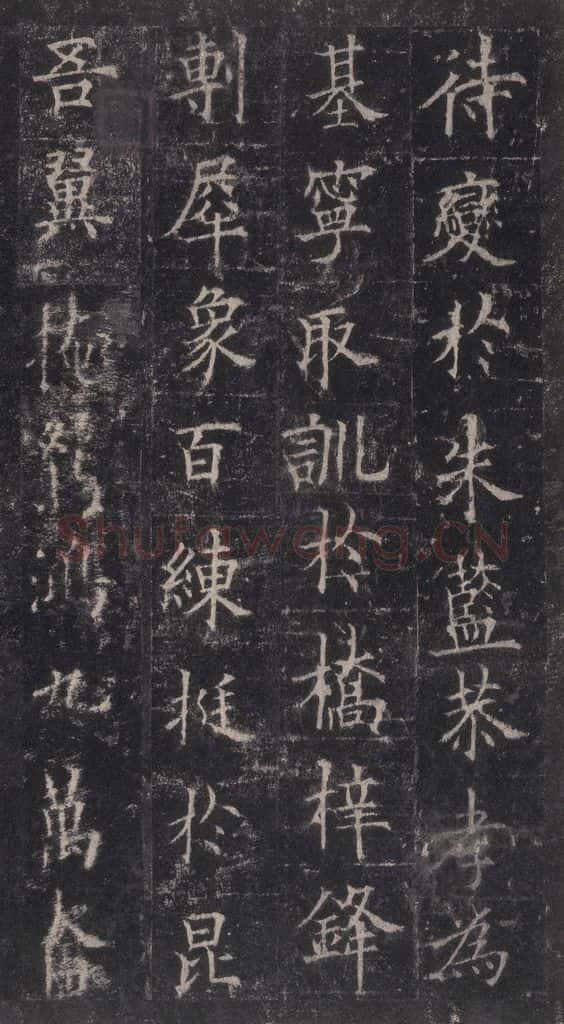 待變於朱藍恭孝為
基寧取訓於橋梓鋒
剸犀象百練挺於昆
吾翼掩鴻九萬奮
Shufawang.CN